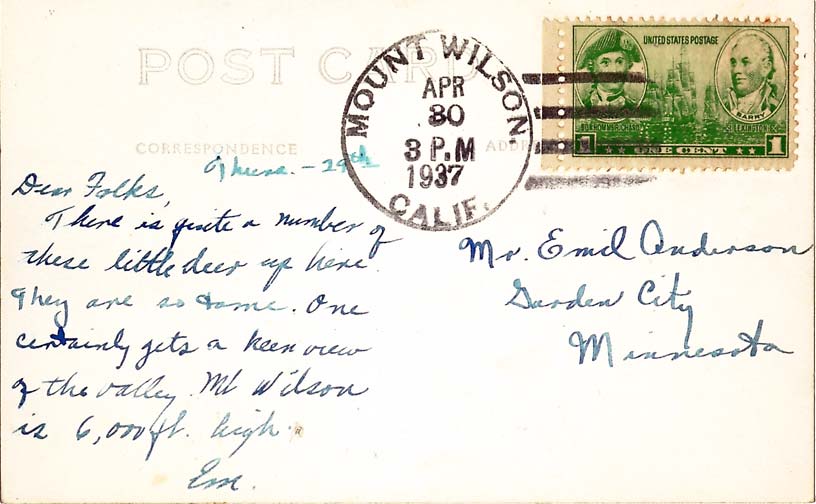 POST CARD
MOUNT WILSON,
APR
30
3 P.M
1937
CALIF.
UNITED STATES POSTAGE
BARRY
BONHOMME RICHARD
LEXINGTON
1 ONE CENT 1
CORRESPONDENCE
ADDRE
Thurs. - 29th
Dear Folks,
There is quite a number of
these little deer up here.
They are so tame. One
certainly gets a keen view
of the valley. Mt Wilson
is 6,000 ft. high.
Em.
Mr. Emil Anderson
Garden City
Minnesota